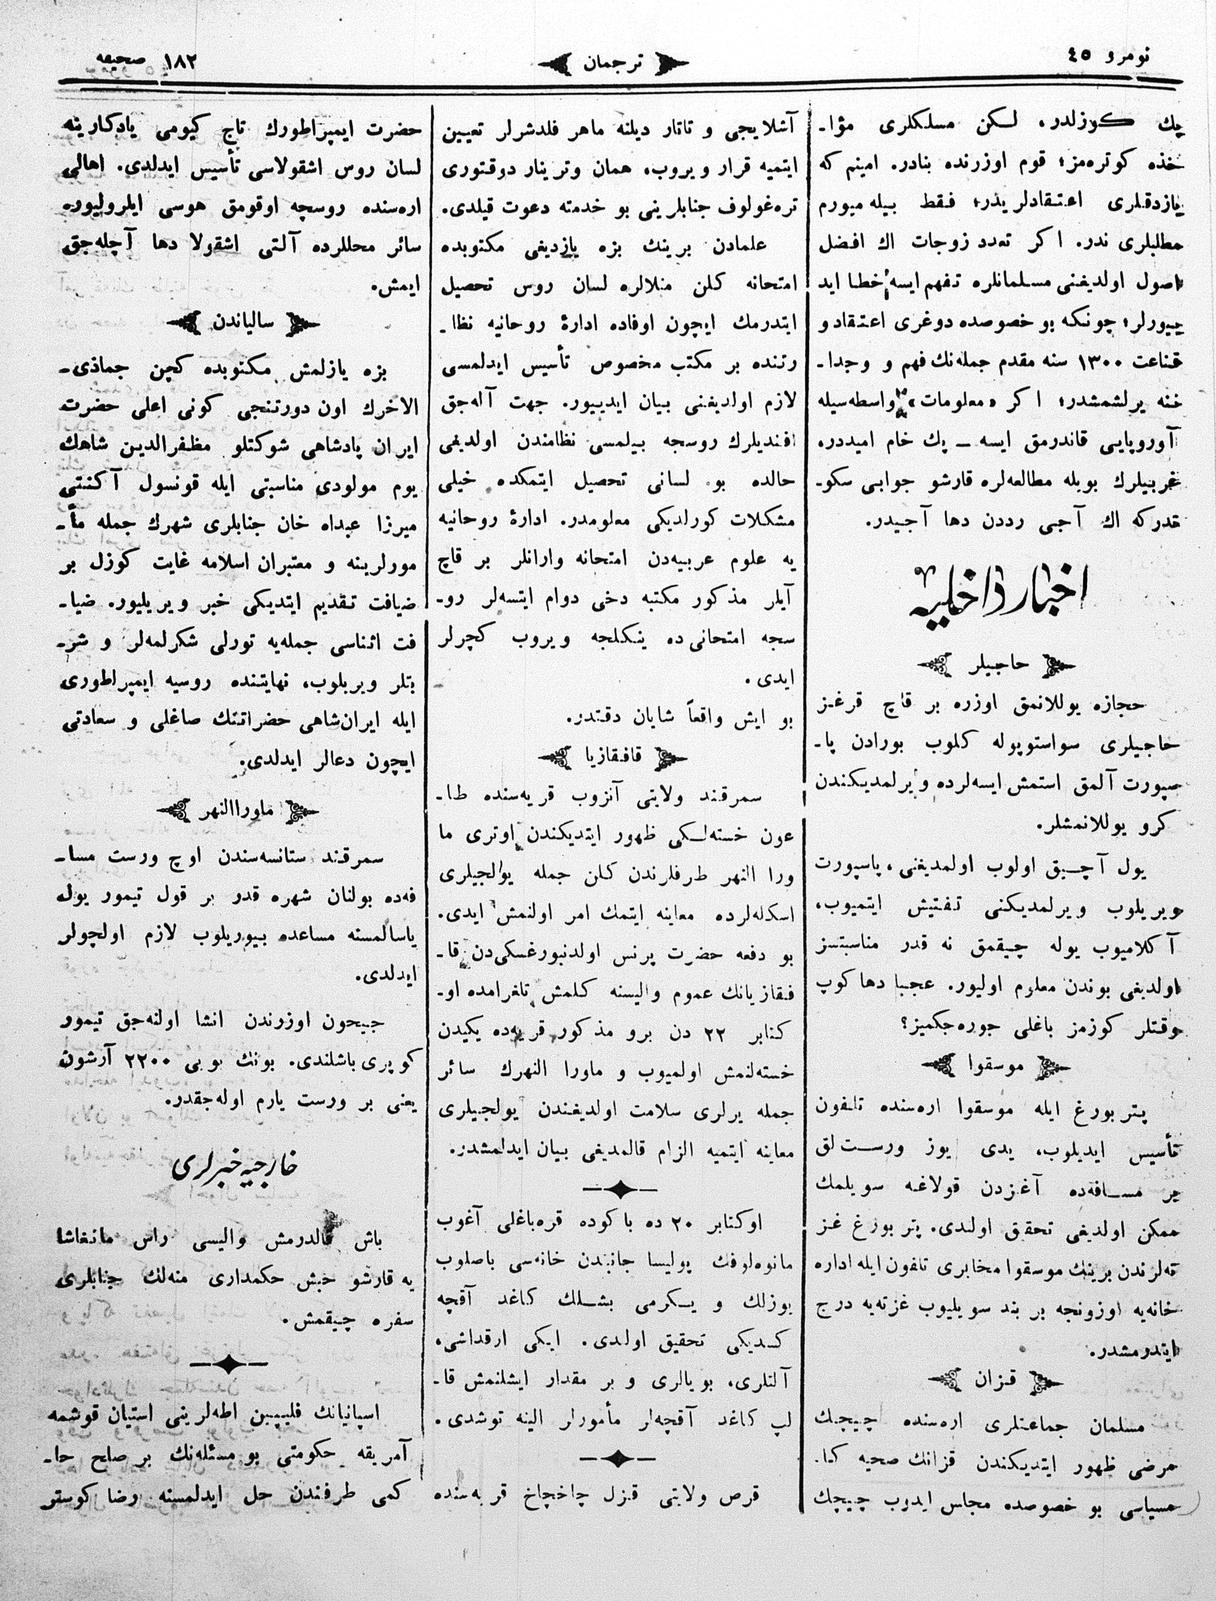 نومرو ٤٥
ترجمان
١٨٢ صحیفه
پك كوزلدر، لكن مسلكلری مؤا-
خذه كوتره‌مز؛ قوم اوزرنده بنادر. امینم كه
یازدقلری اعتقادلریدر؛ فقط بیله میورم
مطلبلری ندر. اكر تعدد زوجات اك افضل
اصول اولدیغنی مسلمانلره تفهم ایسه خطا اید
ییورلر؛ چونكه بو خصوصده دوغری اعتقاد و
قناعت ١٣٠٠ سنه مقدم جمله‌نك فهم و وجدا-
ننه یرلشمشدر؛ اكر «معلومات» واسطه‌سیله
آوروپایی قاندرمق ایسه — پك خام امیددر.
غربیلرك بویله مطالعه‌لره قارشو جوابی سكو-
تدركه اك آجی رددن دها آجیدر.
اخبار داخلیه
حاجیلر
حجازه یوللانمق اوزره بر قاچ قرغز
حاجیلری سواستوپوله كلوب بورادن پا-
سپورت آلمق استمش ایسه‌لرده ویرلمدیكندن
كرو یوللانمشلر.
یول آچیق اولوب اولمدیغنی، پاسپورت
ویریلوب ویرلمدیكنی تفتیش ایتمیوب،
آكلامیوب یوله چیقمق نه قدر مناسبتسز
اولدیغی بوندن معلوم اولیور. عجبا دها كوپ
وقتلر كوزمز باغلی جوره‌جكمیز؟
موسقوا
پتربورغ ایله موسقوا اره‌سنده تلفون
تأسیس ایدیلوب، یدی یوز ورست‌لق
بر مسافه‌ده آغزدن قولاغه سویلمك
ممكن اولدیغی تحقق اولدی. پتربورغ غز
ته‌لرندن برینك موسقوا مخابری تلفون ایله اداره
خانه‌یه اوزونجه بر بند سویلیوب غزته‌یه درج
ایتدرمشدر.
قزان
مسلمان جماعتلری اره‌سنده چیچك
مرضی ظهور ایتدیكندن قزانك صحیه كما-
مسیاسی بو خصوصده مجلس ایدوب چیچك
آشلایجی و تاتار دیلنه ماهر فلدشرلر تعیین
ایتمیه قرار ویروب، همان وترینار دوقتوری
تره‌غولوف جنابلرینی بو خدمته دعوت قیلدی.
علمادن برینك بزه یازدیغی مكتوبده
امتحانه كلن منلالره لسان روس تحصیل
ایتدرمك ایچون اوفاده ادارهٔ روحانیه نظا-
رتنده بر مكتب مخصوص تأسیس ایدلمسی
لازم اولدیغنی بیان ایدییور. جهت آله‌جق
افندیلرك روسجه بیلمسی نظامندن اولدیغی
حالده بو لسانی تحصیل ایتمكده خیلی
مشكلات كورلدیكی معلومدر. ادارهٔ روحانیه
یه علوم عربیه‌دن امتحانه وارانلر بر قاچ
آیلر مذكور مكتبه دخی دوام ایتسه‌لر رو-
سجه امتحانی ده ینكلجه ویروب كچرلر
ایدی.
بو ایش واقعاً شایان دقتدر.
قافقازیا
سمرقند ولایتی آنزوب قریه‌سنده طا-
عون خسته‌لكی ظهور ایتدیكندن اوتری ما
ورا النهر طرفلرندن كلن جمله یولجیلری
اسكله‌لرده معاینه ایتمك امر اولنمش ایدی.
بو دفعه حضرت پرنس اولدنبورغسكی‌دن قا-
فقازیانك عموم والیسنه كلمش تلغرامده او-
كتابر ٢٢ دن برو مذكور قریه‌ده یكیدن
خسته‌لنمش اولمیوب و ماورا النهرك سائر
جمله یرلری سلامت اولدیغندن یولجیلری
معاینه ایتمیه الزام قالمدیغی بیان ایدلمشدر.
اوكتابر ٢٠ ده باكوده قره‌باغلی آغوب
مانوه‌لوفك پولیسا جانبندن خانه‌سی باصلوب
یوزلك و یكرمی بشلك كاغد آقچه
كسدیكی تحقیق اولدی. ایكی ارقداشی،
آلتلری، بویالری و بر مقدار ایشلنمش قا-
لپ كاغد آقچه‌لر مأمورلر الینه توشدی.
قرص ولایتی قیزل چاخچاخ قریه‌سنده
حضرت ایمپراطورك تاج كیومی یادكارینه
لسان روس اشقولاسی تأسیس ایدلدی. اهالی
اره‌سنده روسچه اوقومق هوسی ایلرولیور.
سائر محللرده آلتی اشقولا دها آچله‌جق
ایمش.
سالیاندن
بزه یازلمش مكتوبده كچن جماذی-
الاخرك اون دورتنجی كونی اعلی حضرت
ایران پادشاهی شوكتلو مظفرالدین شاهك
یوم مولودی مناسبتی ایله قونسول آكنتی
میرزا عبداه خان جنابلری شهرك جمله مأ-
مورلرینه و معتبران اسلامه غایت كوزل بر
ضیافت تقدیم ایتدیكی خبر ویریلیور. ضیا-
فت اثناسی جمله‌یه تورلی شكرلمه‌لر و شر-
بتلر ویریلوب، نهایتنده روسیه ایمپراطوری
ایله ایران‌شاهی حضراتنك صاغلی و سعادتی
ایچون دعالر ایدلدی.
ماوراالنهر
سمرقند ستانسه‌سندن اوچ ورست مسا-
فه‌ده بولنان شهره قدر بر قول تیمور یول
یاسالمسنه مساعده بیوریلوب لازم اولچولر
ایدلدی.
جیحون اوزرندن انشا اولنه‌جق تیمور
كوپری باشلندی. بونك بویی ٢٢٠٠ آرشون
یعنی بر ورست یارم اوله‌جقدر.
خارجیه خبرلری
باش قالدرمش والیسی راس مانغاشا
یه قارشو حبش حكمداری منه‌لك جنابلری
سفره چیقمش.
اسپانیانك فلیپین اطه‌لرینی استیان قوشمه
آمریقه حكومتی بو مسئله‌نك بر صلح حا-
كمی طرفندن حل ایدلمسینه رضا كوستر